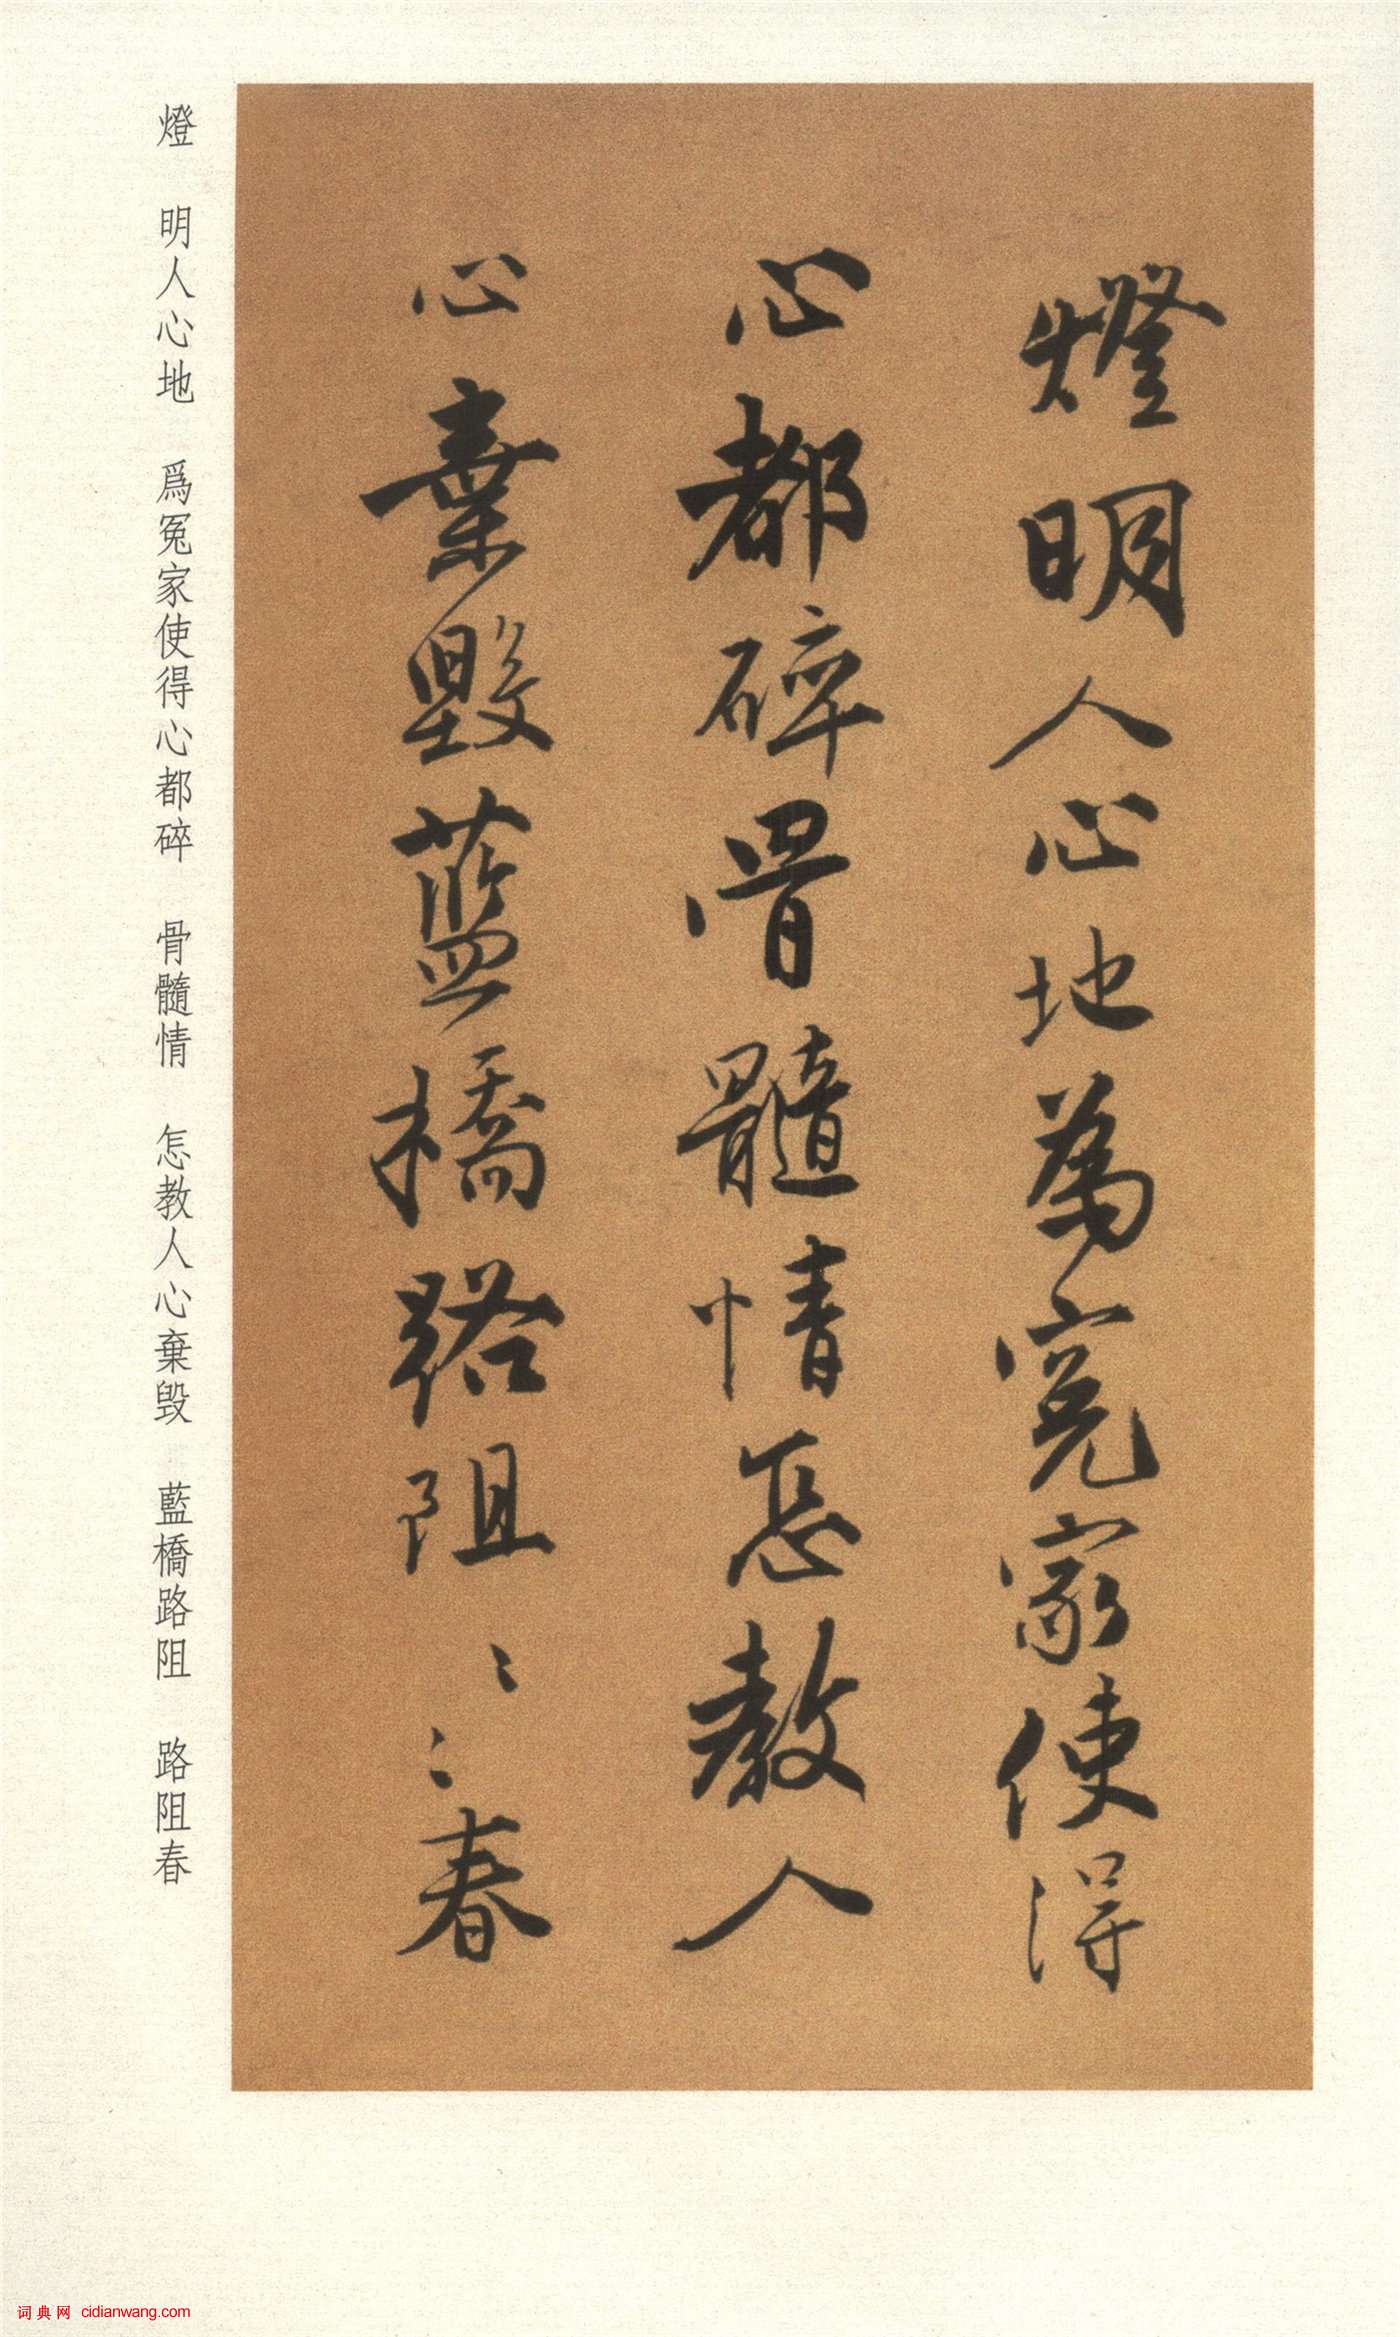 燈明人心地為冤家使得
心都碎骨髓情怎教人
心棄毀藍橋路阻〻〻春
燈 明人心地 爲冤家使得心都碎 骨髓情 怎教人心棄毀 藍橋路阻 路阻春
词典网 cidianwang.com